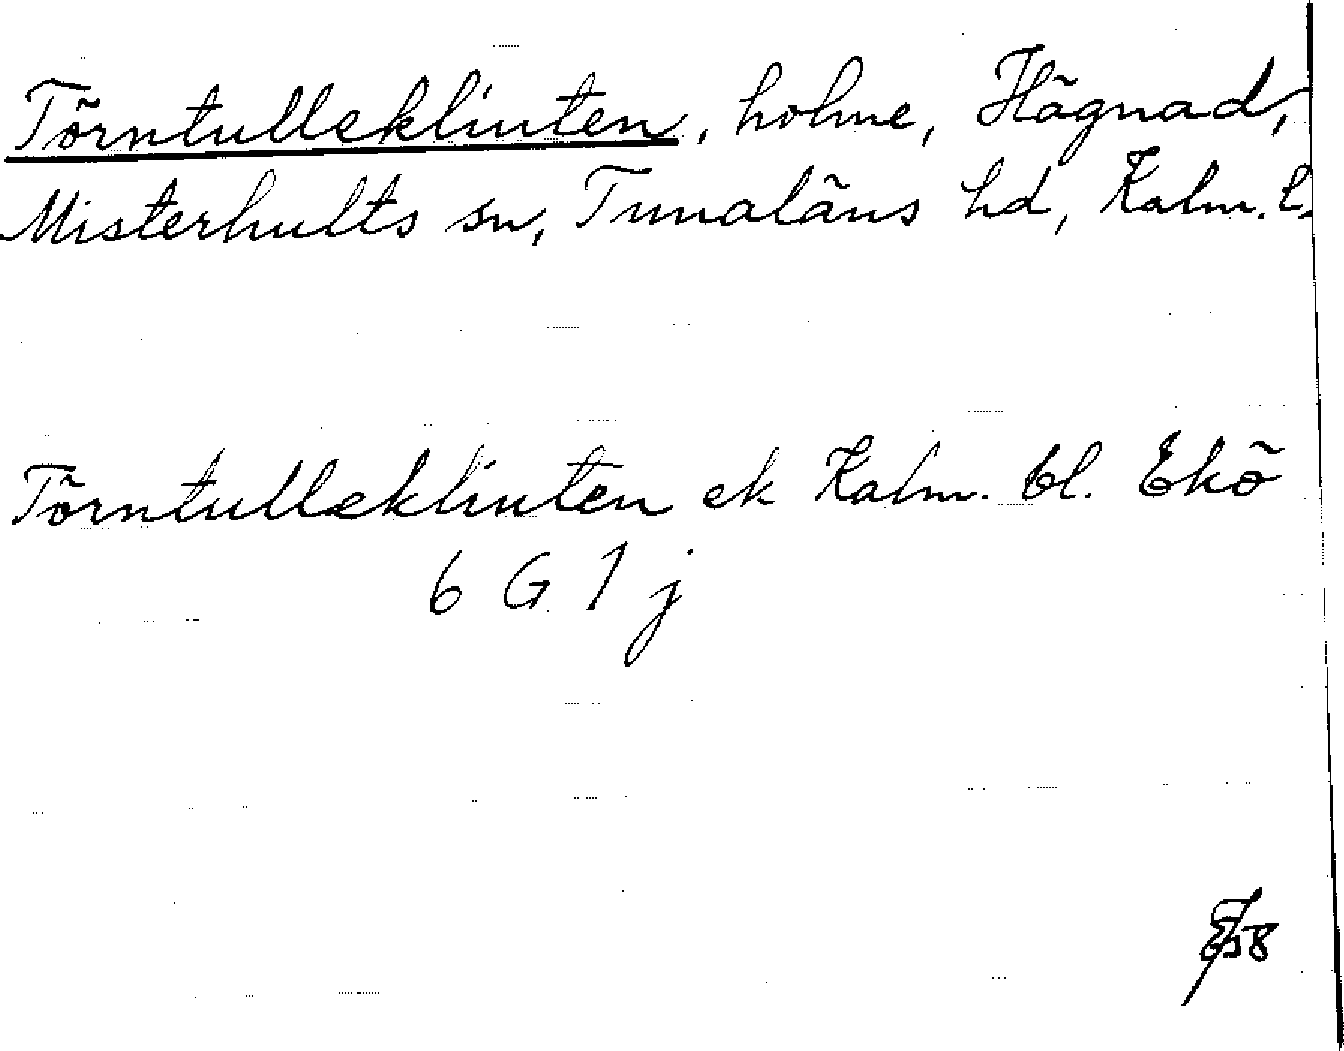 Törntulleklinten, holme, Hägnad,
Misterhults sn, Tunaläns hd, Kalm. l.
Törntulleklinten ek Kalm. bl. Ekö
6 G 1 j